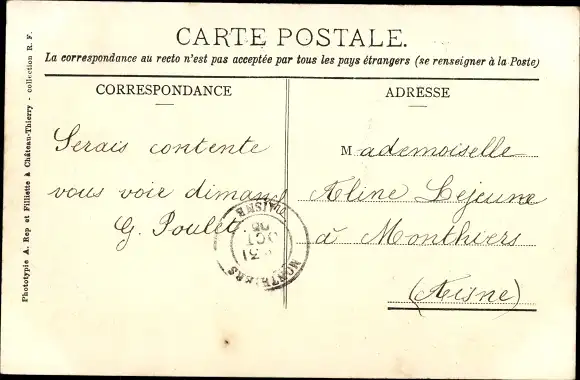 CARTE POSTALE.
La correspondance au recto n'est pas acceptée par tous les pays étrangers (se renseigner à la Poste)
CORRESPONDANCE
Serais contente
vous voir dimanc
G. Poulet.
ADRESSE
Mademoiselle
Aline Lejeune
à Monthiers
(Aisne)
MONTHIERS
AISNE
31
OCT
05
Phototypie A. Rep et Filliette à Château-Thierry - collection R. F.